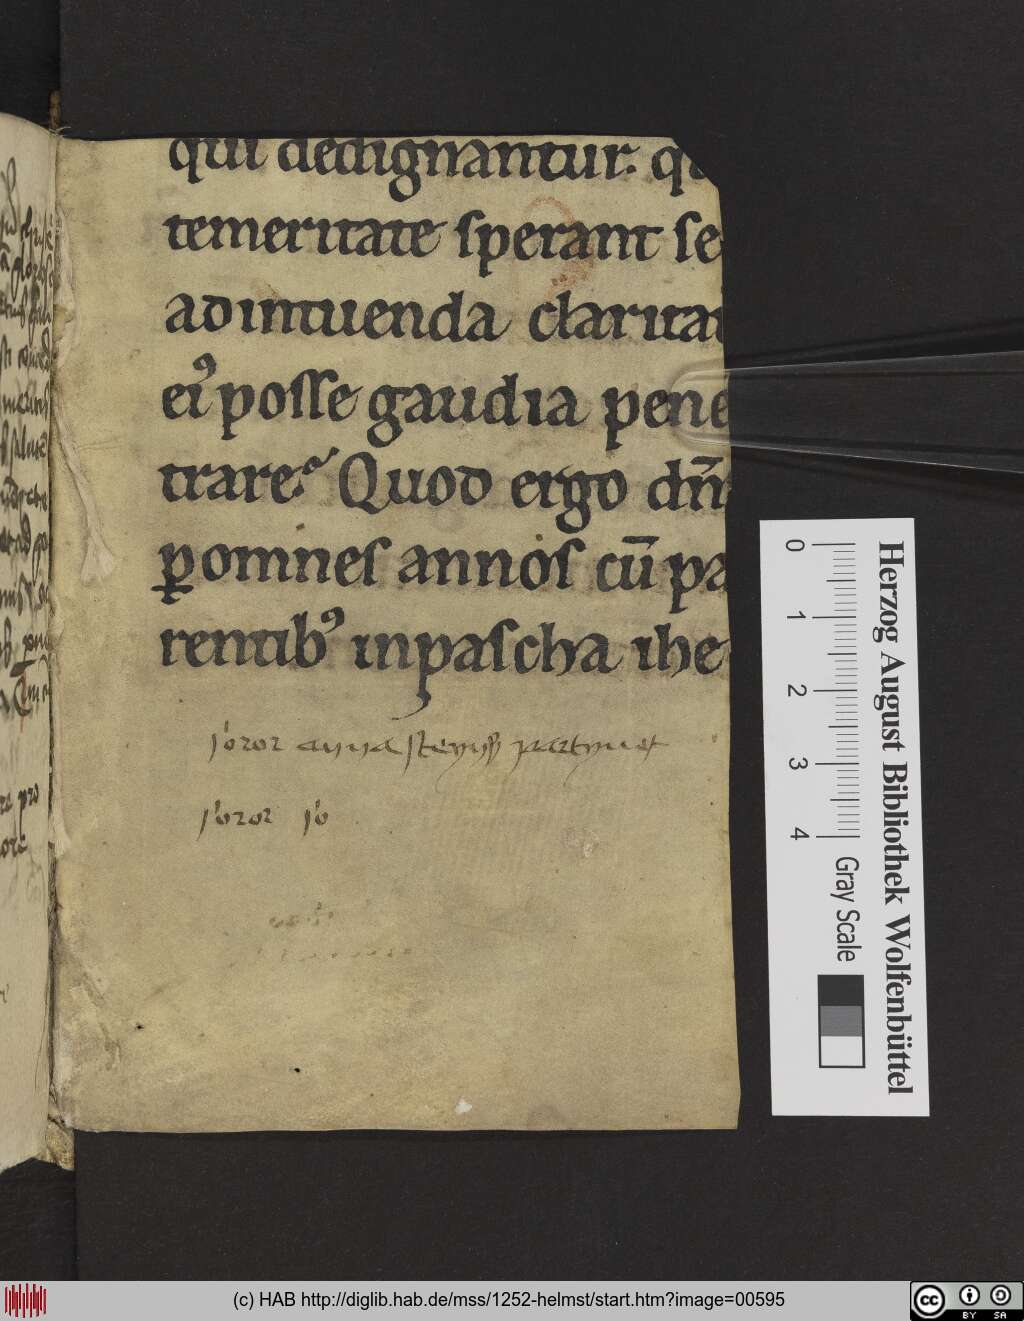 qui dedignantur. q
temeritate sperant se
ad intuenda clarita
ei⁹ posse gaudia pene
trare? Quod ergo dn̄s
ꝑ omnes annos cū pa
rentib⁹ in pascha ihe
soror anna
soror so
Herzog August Bibliothek Wolfenbüttel
0 1 2 3 4 Gray Scale
(c) HAB http://diglib.hab.de/mss/1252-helmst/start.htm?image=00595
cc BY SA